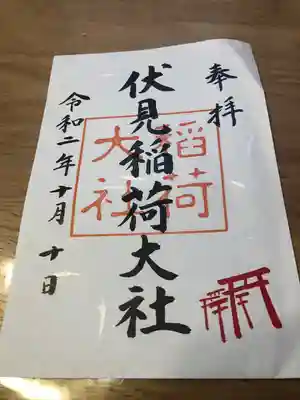 奉拝
伏見稲荷大社
稲荷
大社
令和二年十月十日